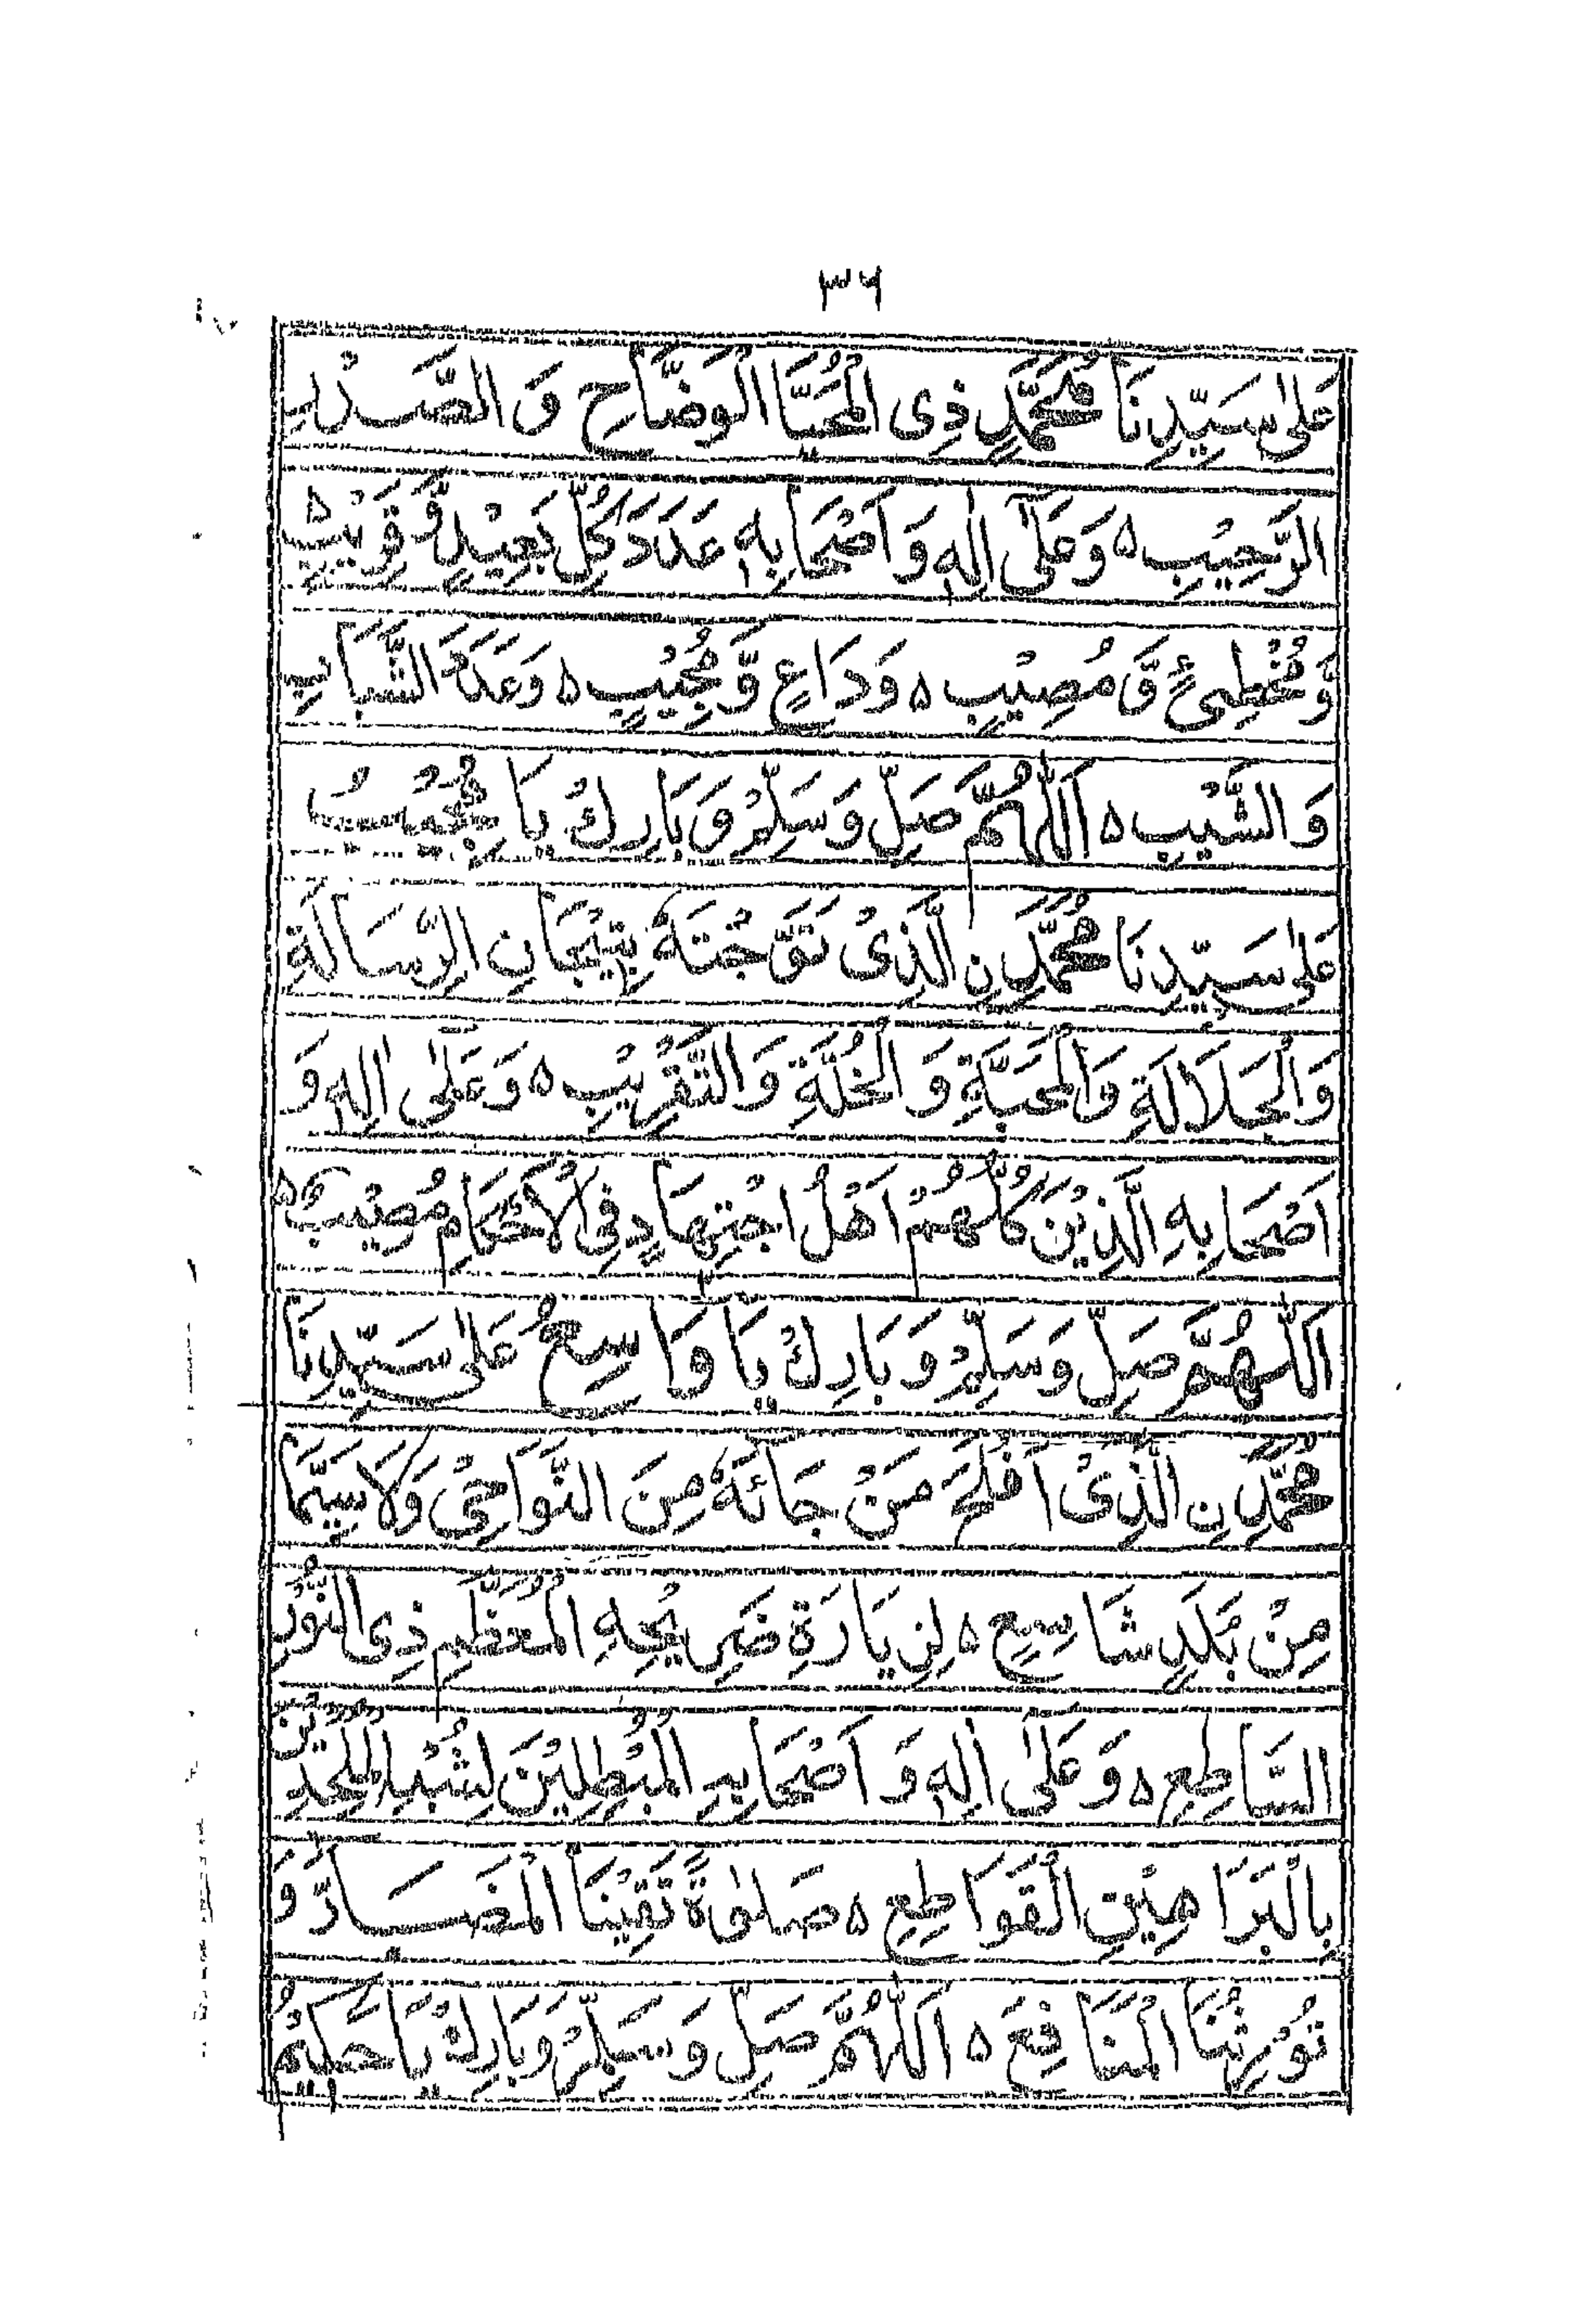 ۳۶
عَلٰى سَيِّدِنَا مُحَمَّدٍ ذِى الْمُحَيَّا الْوَضَّاحِ وَ الصَّدْرِ
الرَّحِيْبِ ٥ وَعَلٰٓى اٰلِهٖ وَ اَصْحَابِهٖ عَدَدَ كُلِّ بَعِيْدٍ وَّ قَرِيْبٍ ٥
وَّ مُخْطِئٍ وَّ مُصِيْبٍ ٥ وَدَاعٍ وَّ مُجِيْبٍ ٥ وَعَدَدَ الشَّبَابِ
وَ الشَّيْبِ ٥ اَللّٰهُمَّ صَلِّ وَسَلِّمْ وَ بَارِكْ يَا مُجِيْبُ
عَلٰى سَيِّدِنَا مُحَمَّدِ نِ الَّذِىْ تَوَّجْتَهٗ بِتِيْجَانِ الرِّسَالَةِ
وَالْجَلَالَةِ وَالْمَحَبَّةِ وَ الْخُلَّةِ وَالتَّقْرِيْبِ ٥ وَعَلٰى اٰلِهٖ وَ
اَصْحَابِهِ الَّذِيْنَ كُلُّهُمْ اَهْلُ اجْتِهَادٍ فِى الْاَحْكَامِ مُصِيْبٌ ٥
اَللّٰهُمَّ صَلِّ وَسَلِّمْ وَ بَارِكْ يَا وَاسِعُ عَلٰى سَيِّدِنَا
مُحَمَّدِ نِ الَّذِىْ اَفْلَحَ مَنْ جَائَهٗ مِنَ النَّوَاحِىْ وَلَا سِيَّمَا
مِنْ بَلَدٍ شَاسِعٍ ٥ لِزِيَارَةِ ضَرِيْحِهِ الْمُعَظَّمِ ذِى النُّوْرِ
السَّاطِعِ ٥ وَ عَلٰى اٰلِهٖ وَ اَصْحَابِهِ الْمُبْطِلِيْنَ لِشُبْهِ الْمُلْحِدِيْنَ
بِالْبَرَاهِيْنِ الْقَوَاطِعِ ٥ صَلٰوةً تَقِيْنَا الْمَضَارَّ وَ
تُوْرِثُنَا الْمَنَافِعَ ٥ اَللّٰهُمَّ صَلِّ وَسَلِّمْ وَبَارِكْ يَا حَكِيْمُ